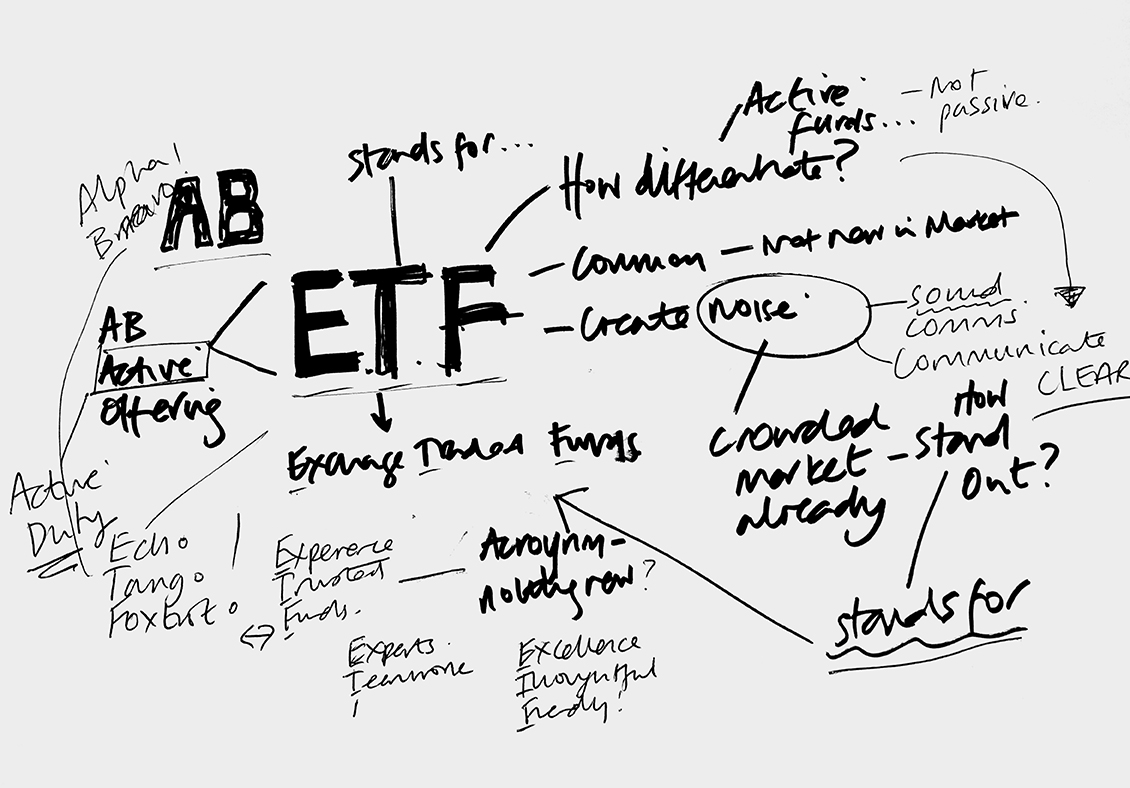 Active
funds...
– Not
passive.
stands for...
How differentiate?
Alpha!
Bravo!
AB
– Common – Not new in Market
ETF
– Create Noise
– sound
comms
Communicate
CLEAR
AB
Active
Offering
How
Crowded
market – Stand
already
Out?
Exchange Traded Funds
Active
Duty
Echo
Tango
Foxtrot
Experience
Trusted
Funds.
Acroynm –
nothing new?
stands for
Experts
Teamwork
Excellence
Thoughtful
Friendly!